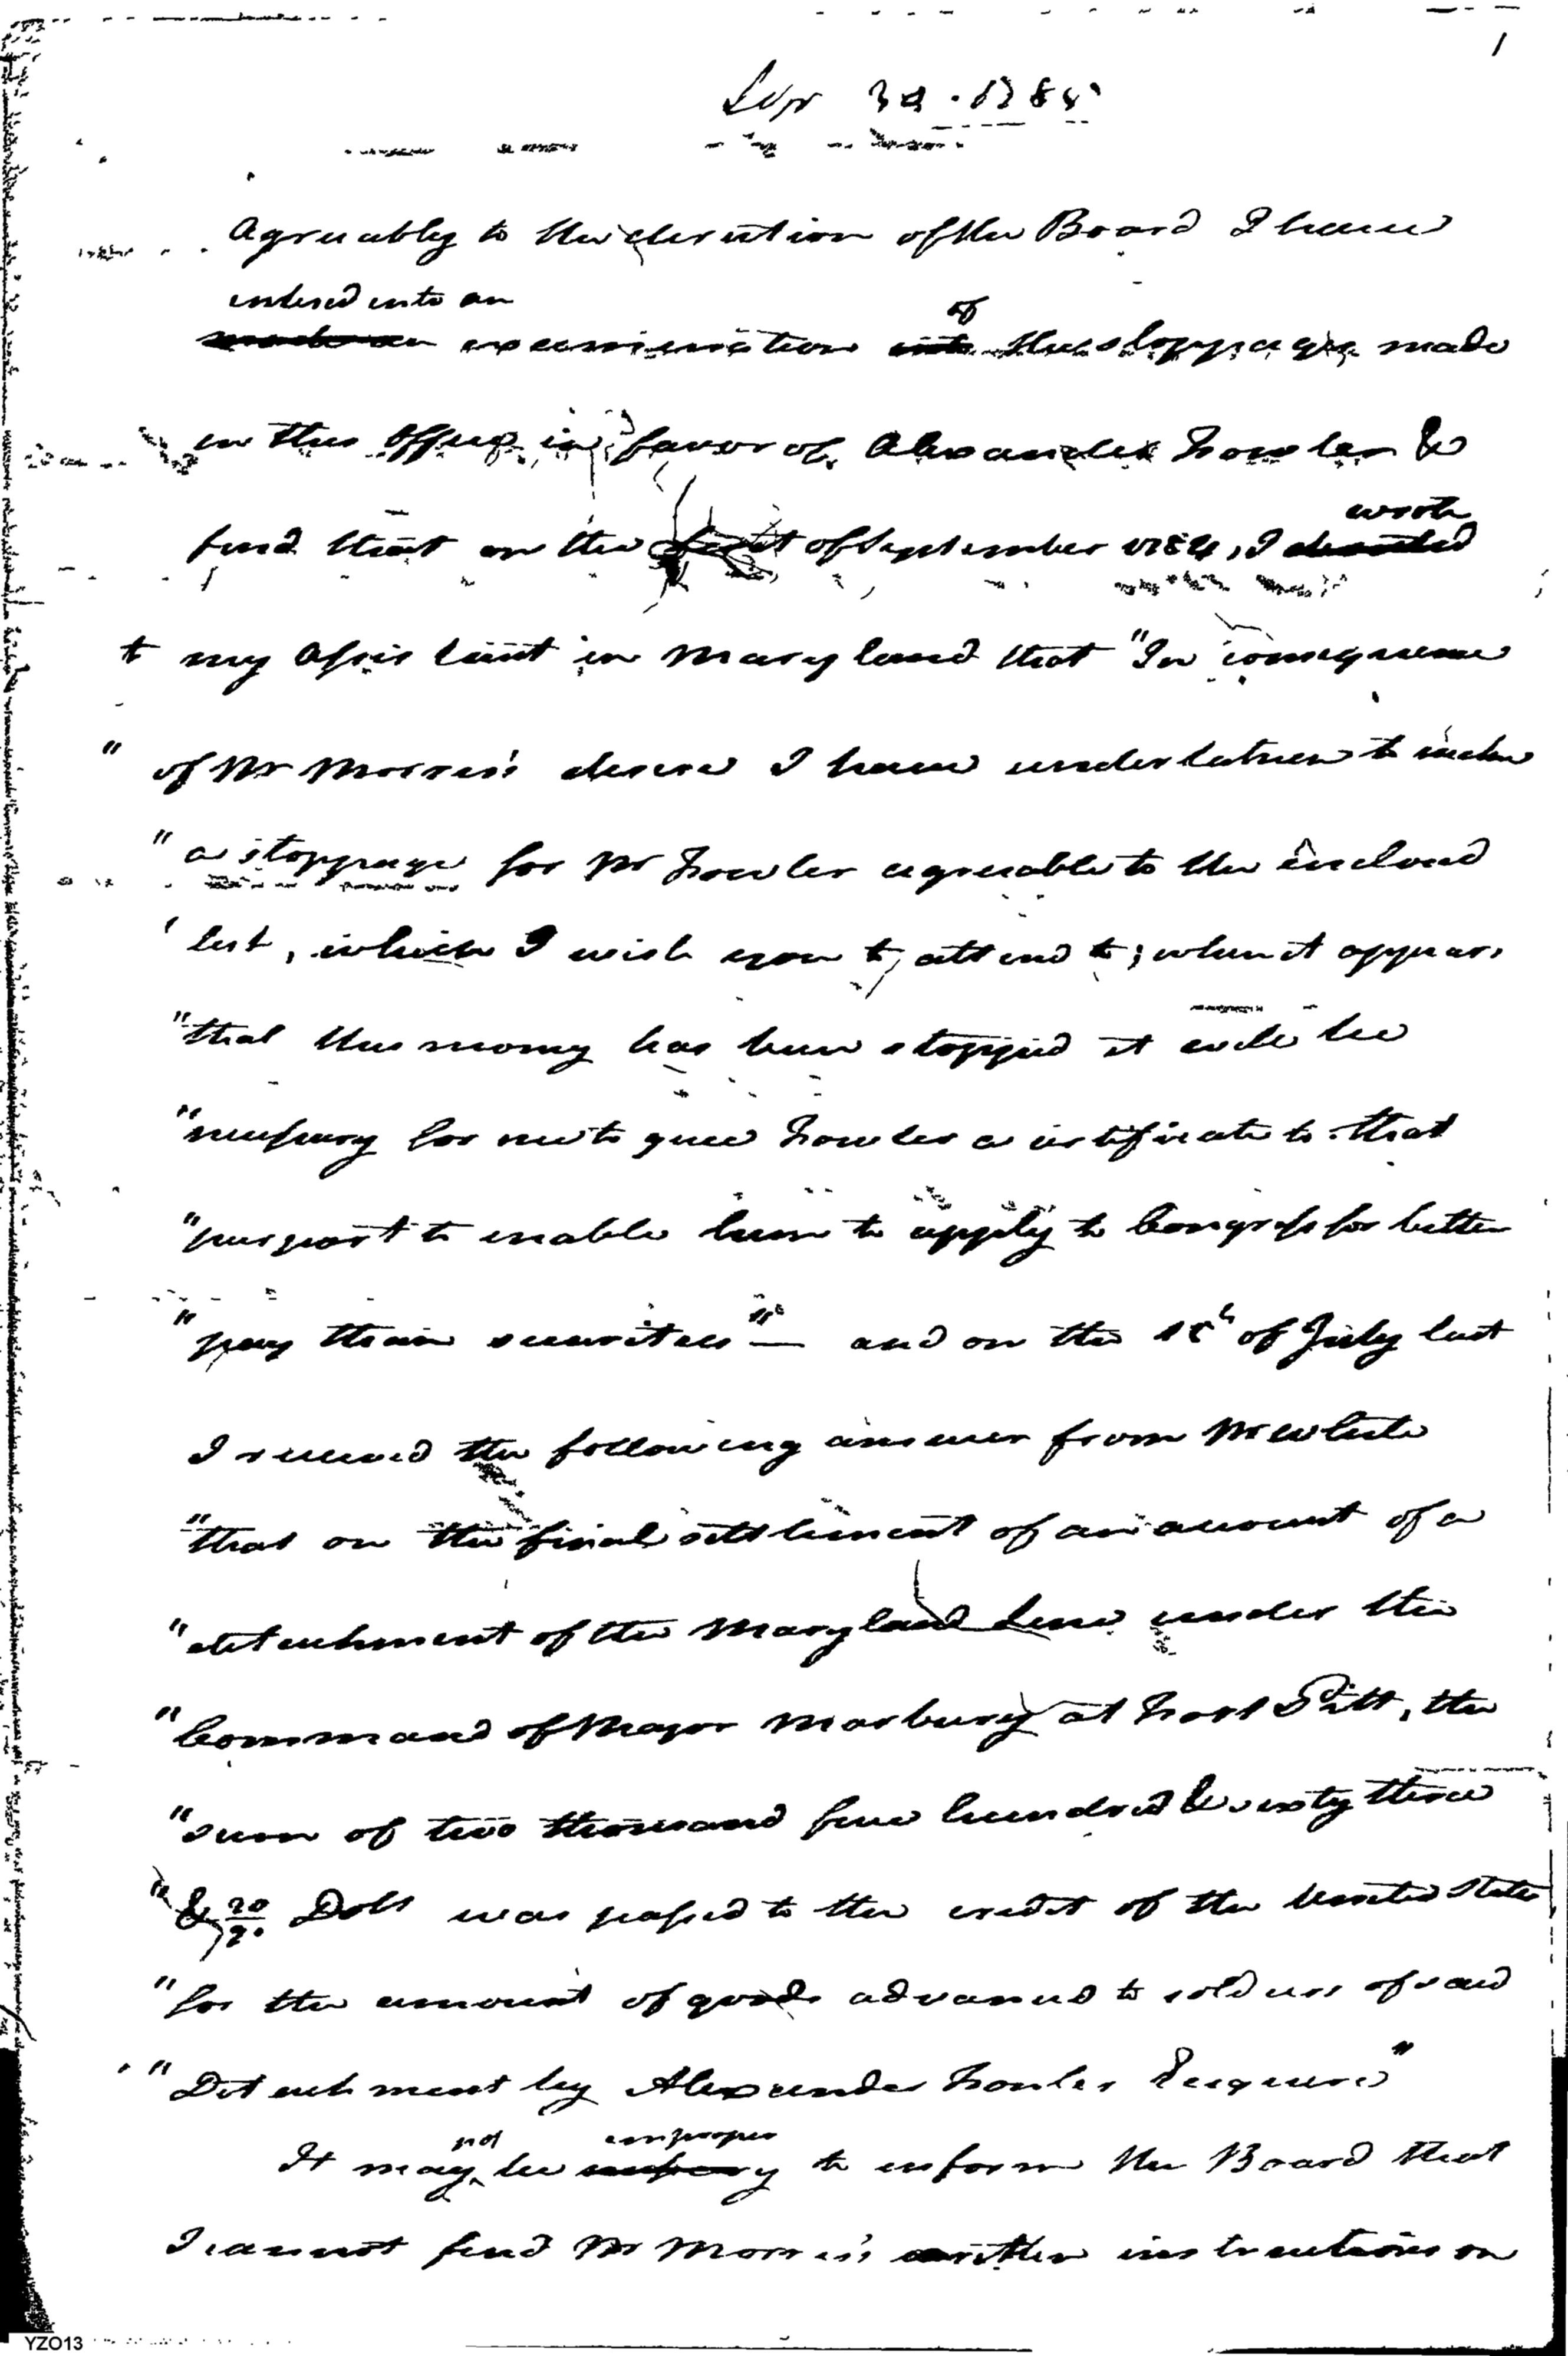 1
Sep 30. 1785
Agreeably to the direction of the Board I have
entered into an of
made an examination into the stoppage made
in this Office in favor of Alexander Fowler &
find that on the first of September 1784, I wrote
directed
to my Assistant in Maryland that "In consequence
" of Mr Morris's desire I have undertaken to make
" a stoppage for Mr Fowler agreeable to the enclosed
' list, which I wish you to attend to; when it appears
"that this money has been stopped it will be
"necessary for me to give Fowler a certificate to that
"purport to enable him to apply to Congress for better
"pay than securities" — and on the of July last
I received the following answer from Mr White
"that on the final settlement of an account of a
"detachment of the Maryland Line under the
"Command of Major Marbury at Fort Pitt, the
"sum of two thousand five hundred & sixty three
"& 20/90 Dolls was passed to the credit of the United States
"for the amount of goods advanced to soldiers of said
"Detachment by Alexander Fowler Esquire"
not improper
It may be necessary to inform the Board that
I cannot find Mr Morris's written instructions on
YZO13